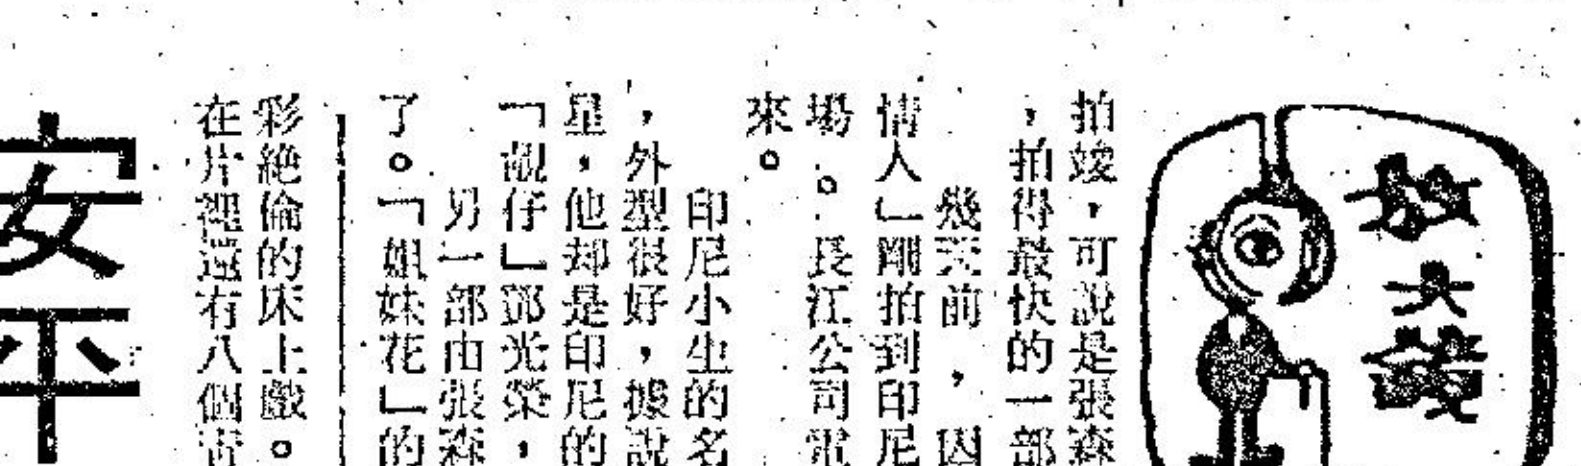 放大鏡
拍竣，可說是張森
，拍得最快的一部
幾天前，因
情人」剛拍到印尼
場。長江公司電
來。
印尼小生的名
，外型很好，據說
星，他却是印尼的
「靚仔」鄧光榮，
另一部由張森
了。「姐妹花」的
彩絶倫的床上戲。
在片裡還有八個
安平